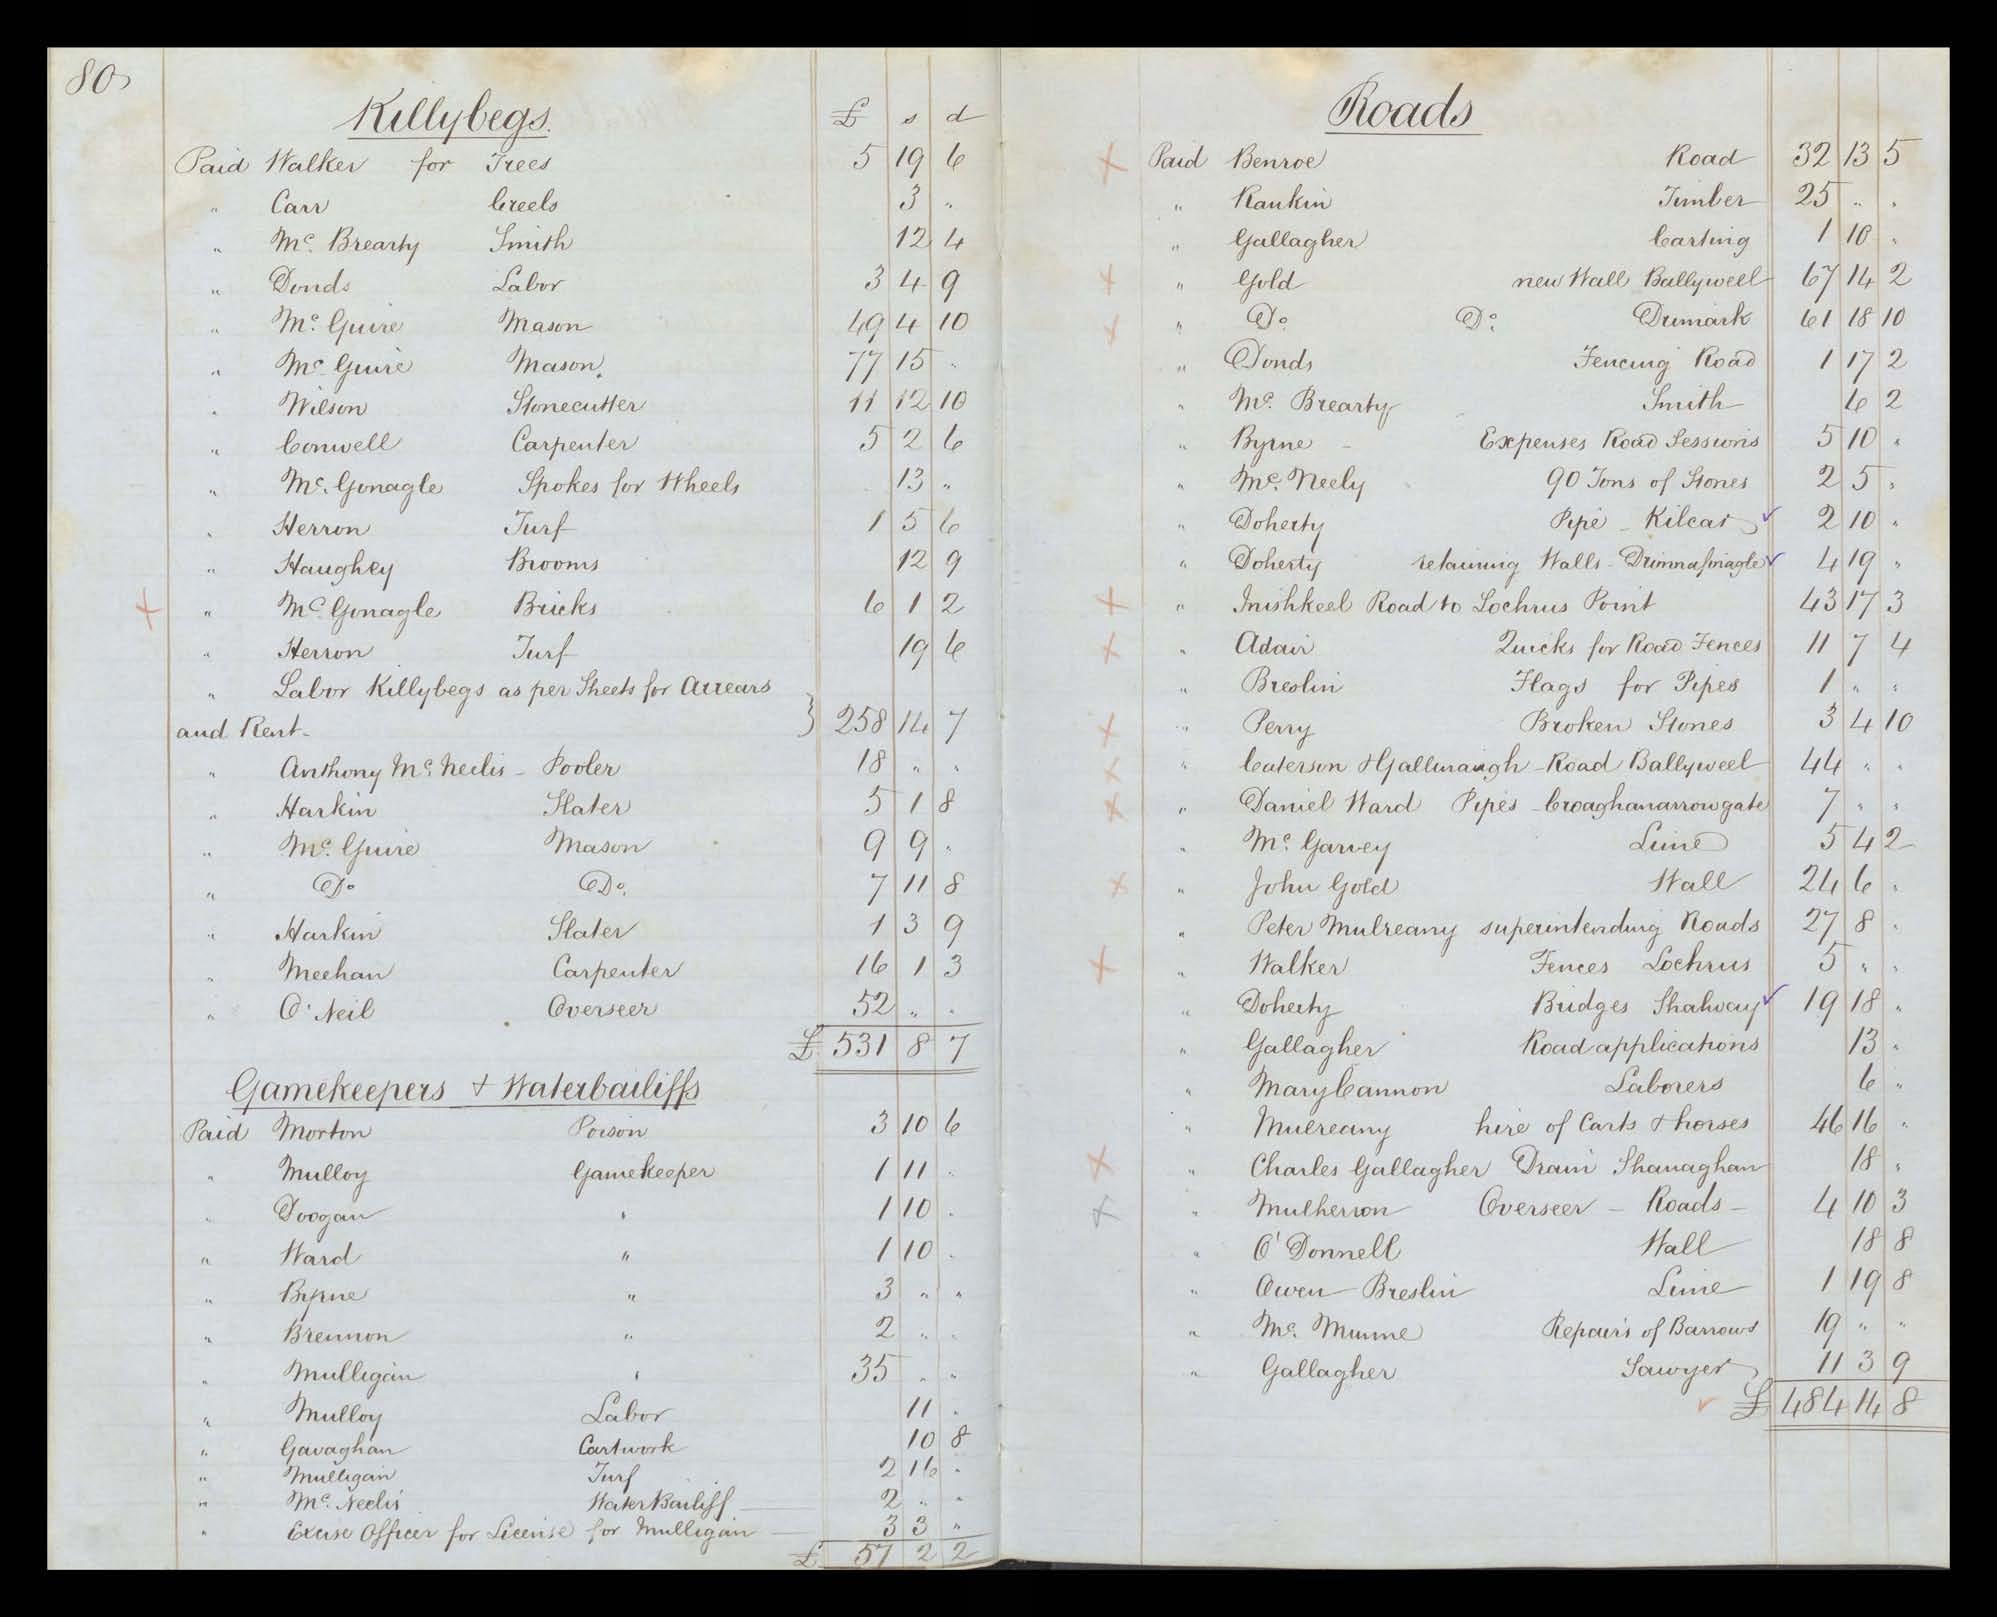 80
Killybegs.
£ s d
Paid Walker for Trees 5 19 6
" Carr Creels 3 "
" Mc. Brearty Smith 12 4
" Donds Labor 3 4 9
" Mc. Guire Mason 49 4 10
" Mc. Guire Mason. 77 15 "
" Wilson Stonecutter 11 12 10
" Conwell Carpenter 5 2 6
" Mc. Gonagle Spokes for Wheels 13 "
" Herron Turf 1 5 6
" Haughey Brooms 12 9
" Mc Gonagle Bricks 6 1 2
" Herron Turf 19 6
" Labor Killybegs as per Sheets for Arrears
and Rent - } 258 14 7
" Anthony Mc. Neilis - Pooler 18 " "
" Harkin Slater 5 1 8
" Mc. Guire Mason 9 9 "
" Do Do. 7 11 8
" Harkin Slater 1 3 9
" Meehan Carpenter 16 1 3
" O'Neil Overseer 52 " "
£ 531 8 7
Gamekeepers & Waterbailiffs
Paid Morton Poison 3 10 6
" Mulloy Gamekeeper 1 11 "
" Doogan " 1 10 "
" Ward " 1 10 "
" Byrne " 3 " "
" Brennon " 2 " "
" Mulligan " 35 " "
" Mulloy Labor 11 "
" Gavaghan Cartwork 10 8
" Mulligan Turf 2 16 "
" Mc. Neelis Water Bailiff 2 " "
" Excise Officer for License for Mulligan 3 3 "
£ 57 2 2
Roads
Paid Benroe Road 32 13 5
" Rankin Timber 25 " "
" Gallagher Carting 1 10 "
" Gold new Wall Ballyweel 67 14 2
" Do. Do. Drimark 61 18 10
" Donds Fencing Road 1 17 2
" Mc. Brearty Smith 6 2
" Byrne - Expenses Road Sessions 5 10 "
" Mc. Neely 90 Tons of Stones 2 5 "
" Doherty Pipe - Kilcar 2 10 "
" Doherty retaining Walls - Drimnafinagle 4 19 "
" Inishkeel Road to Lochrus Point 43 17 3
" Adair Quicks for Road Fences 11 7 4
" Breslin Flags for Pipes 1 " "
" Perry Broken Stones 3 4 10
" Caterson & Gallinaugh - Road Ballyweel 44 " "
" Daniel Ward Pipes - Croaghanarrowgate 7 " "
" Mc. Garvey Lime 5 4 2
" John Gold Wall 24 6 "
" Peter Mulreany superintending Roads 27 8 "
" Walker Fences Lochrus 5 " "
" Doherty Bridges Shalwey 19 18 "
" Gallagher Road applications 13 "
" Mary Cannon Laborers 6 "
" Mulreany hire of Carts & horses 46 16 "
" Charles Gallagher Drain Shanaghan 18 "
" Mulherron Overseer - Roads - 4 10 3
" O'Donnell Wall 18 8
" Owen Breslin Lime 1 19 8
" Mc. Munne Repairs of Barrows 19 " "
" Gallagher Sawyer 11 3 9
£ 484 14 8